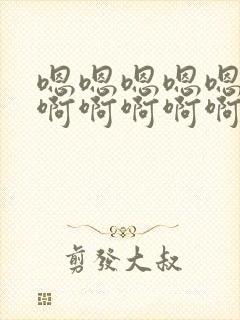 嗯嗯嗯嗯嗯
啊啊啊啊啊
剪發大叔